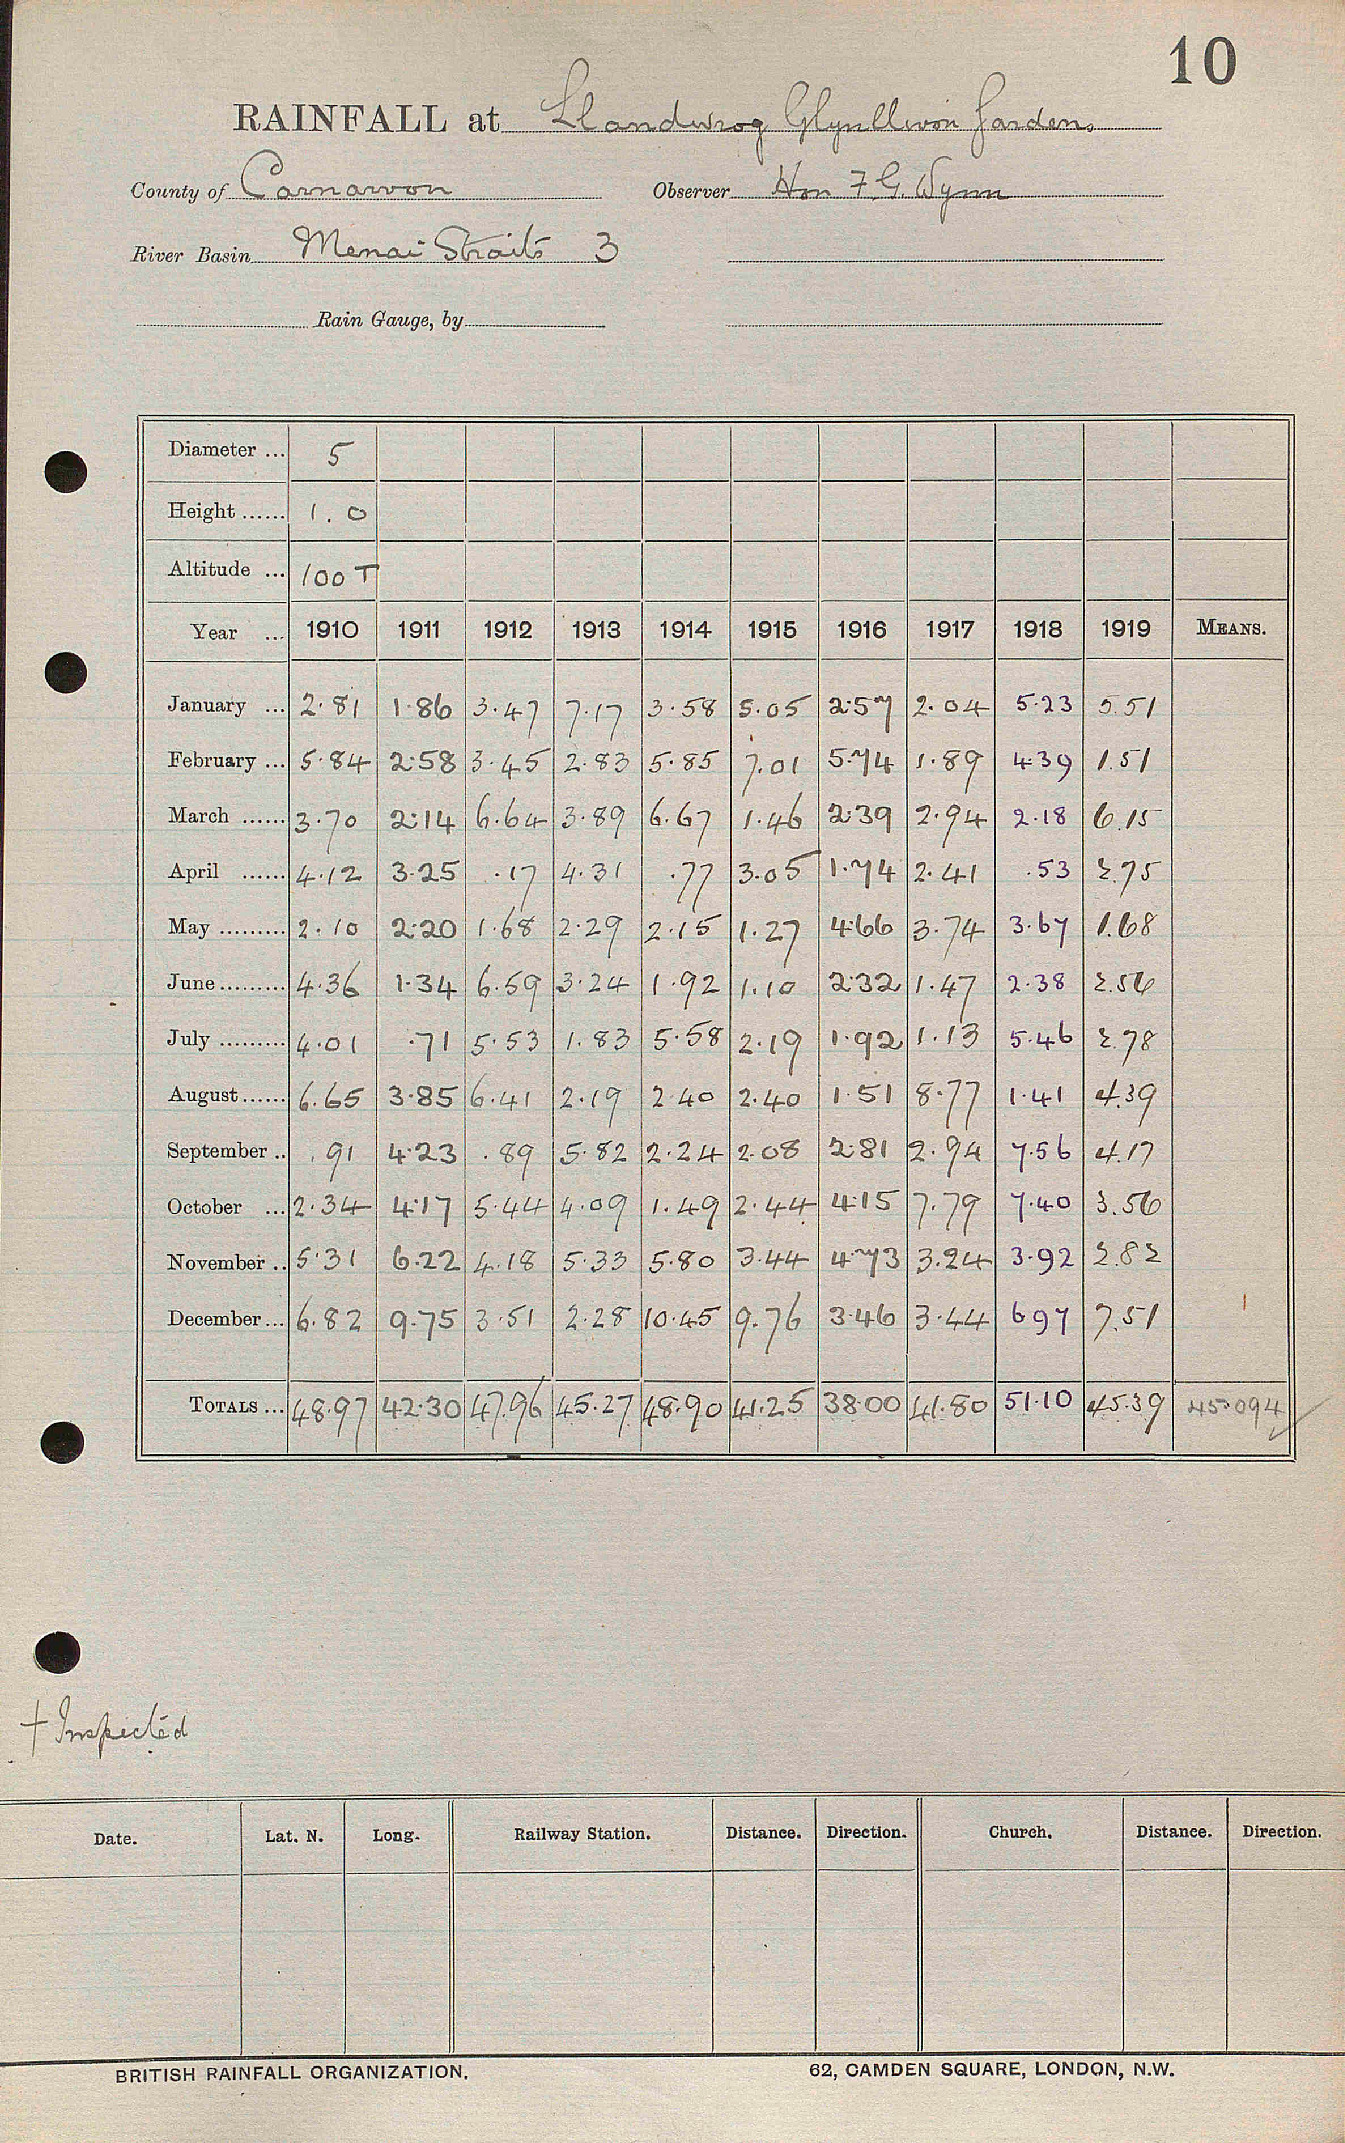 10
RAINFALL at Llandwrog Glynllivon Gardens
County of Carnarvon Observer Hon F. G. Wynn
River Basin Menai Straits 3
Rain Gauge, by
Diameter ... 5
Height ...... 1.0
Altitude ... 100 T
Year ... 1910 1911 1912 1913 1914 1915 1916 1917 1918 1919 MEANS.
January ... 2.81 1.86 3.47 7.17 3.58 5.05 2.57 2.04 5.23 5.51
February ... 5.84 2.58 3.45 2.83 5.85 7.01 5.74 1.89 4.39 1.51
March ...... 3.70 2.14 6.64 3.89 6.67 1.46 2.39 2.94 2.18 6.15
April ...... 4.12 3.25 .17 4.31 .77 3.05 1.74 2.41 .53 2.75
May ......... 2.10 2.20 1.68 2.29 2.15 1.27 4.66 3.74 3.67 1.68
June ......... 4.36 1.34 6.59 3.24 1.92 1.10 2.32 1.47 2.38 2.56
July ......... 4.01 .71 5.53 1.83 5.58 2.19 1.92 1.13 5.46 2.78
August ...... 6.65 3.85 6.41 2.19 2.40 2.40 1.51 8.77 1.41 4.39
September .. .91 4.23 .89 5.82 2.24 2.08 2.81 2.94 7.56 4.17
October ... 2.34 4.17 5.44 4.09 1.49 2.44 4.15 7.79 7.40 3.56
November .. 5.31 6.22 4.18 5.33 5.80 3.44 4.73 3.24 3.92 2.82
December ... 6.82 9.75 3.51 2.28 10.45 9.76 3.46 3.44 6.97 7.51
TOTALS ... 48.97 42.30 47.96 45.27 48.90 41.25 38.00 41.80 51.10 45.39 45.094
† Inspected
Date. Lat. N. Long. Railway Station. Distance. Direction. Church. Distance. Direction.
BRITISH RAINFALL ORGANIZATION. 62, CAMDEN SQUARE, LONDON, N.W.